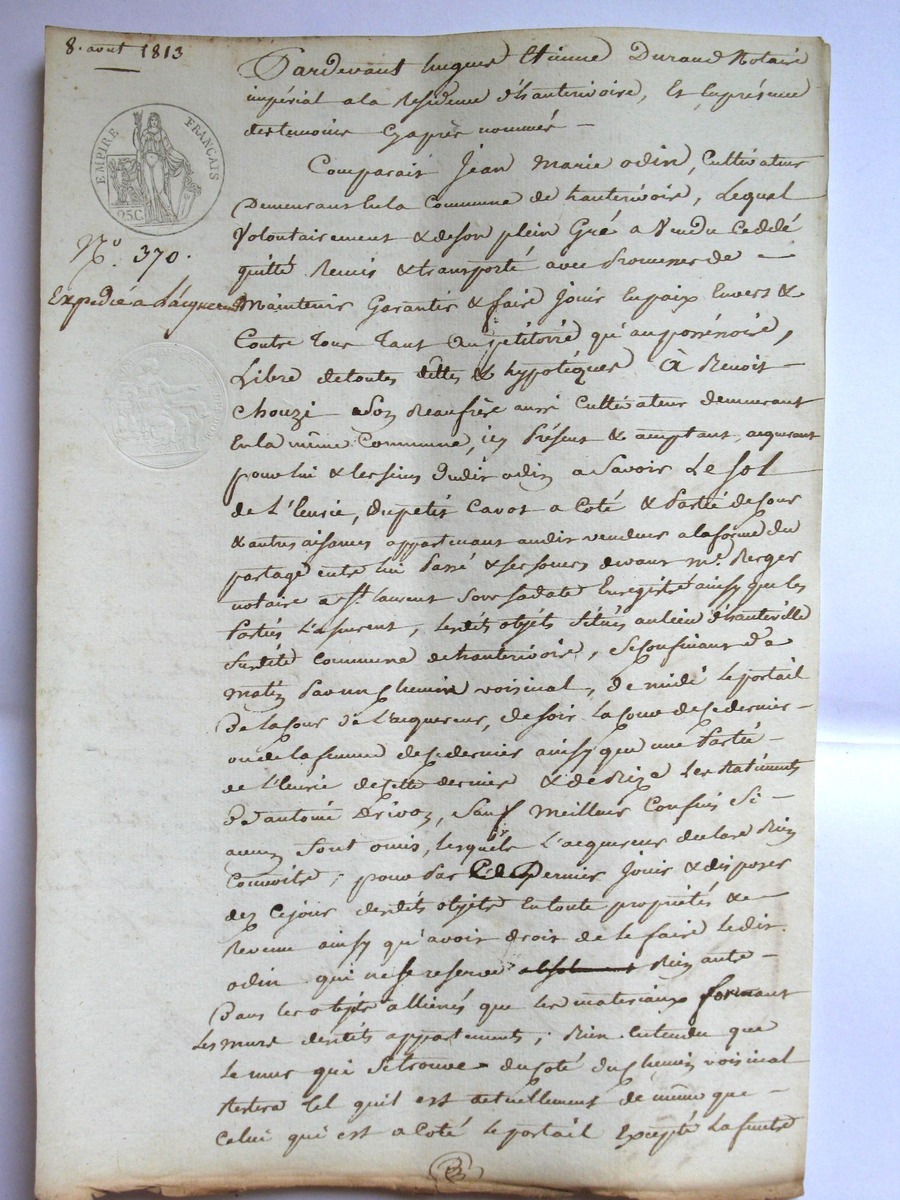 8. aout 1813
EMPIRE FRANÇAIS
25C.
N.o 370.
Expedié a L'acquereur
Pardevant hugues Etienne Durand Notaire
impérial a la Residence d'hauterivoire, Et Enprésence
des temoins Cyaprès nommés —
Comparait Jean Marie odin, Cultivateur
Demeurant En la Commune de hauterivoire, Lequel
Volontairement & deson plein Gré a Vendu Ceddé
quitté Remis & transporté avec Promesses de —
Maintenir Garantir & faire Jouir En paix Envers &
Contre Tous Tant Au pétitoire qu'au possessoire,
Libre de toutes dettes & hypotèques À Benoit
Chouzi son Beaufrère aussi Cultivateur demeurant
En la même Commune, icy Présent & acceptant, acquerant
pour lui & les siens Dudit odin a Savoir Le Sol
de L'Ecurie, Du petit Cavot a Coté & Partie de Cour
& autres aisances appartenant audit vendeur a la forme du
partage entre lui Passé & ses soeurs devant m.e Berger
notaire a St. laurent Sous sa date Enregistré ainsy que les
Parties L'assurent, lesdits objets Situés au lieu d'hauteville
Surdite Commune de hauterivoire, Se Confinant De
matin Par un Chemin voisinal, De midi le portail
De la Cour de L'acquereur, de soir la Cour de Ce dernier
ou de la femme de Ce dernier ainsy que une Partie —
de L'Ecurie de Cette dernier & de Bize Les Batiments
De antoine, Sauf Meilleurs Confins Si
aucun Sont omis, lesquels L'acquereur declare Bien
Connoitre; pour Par Ce Dernier Jouir & disposer
dez Cejour desdits objets En toute propriétés &
Revenu ainsy qu'avoir droit de le faire ledit
odin qui ne se reserve absolument Rien autre —
Dans les objets alliénés que les materiaux formant
Les murs desdits appartements; Bien Entendu que
Le mur qui Setrouve du Coté du Chemin voisinal
Restera tel quil est actuellement de même que —
Celui qui est a Coté le portail Excepté la fenetre